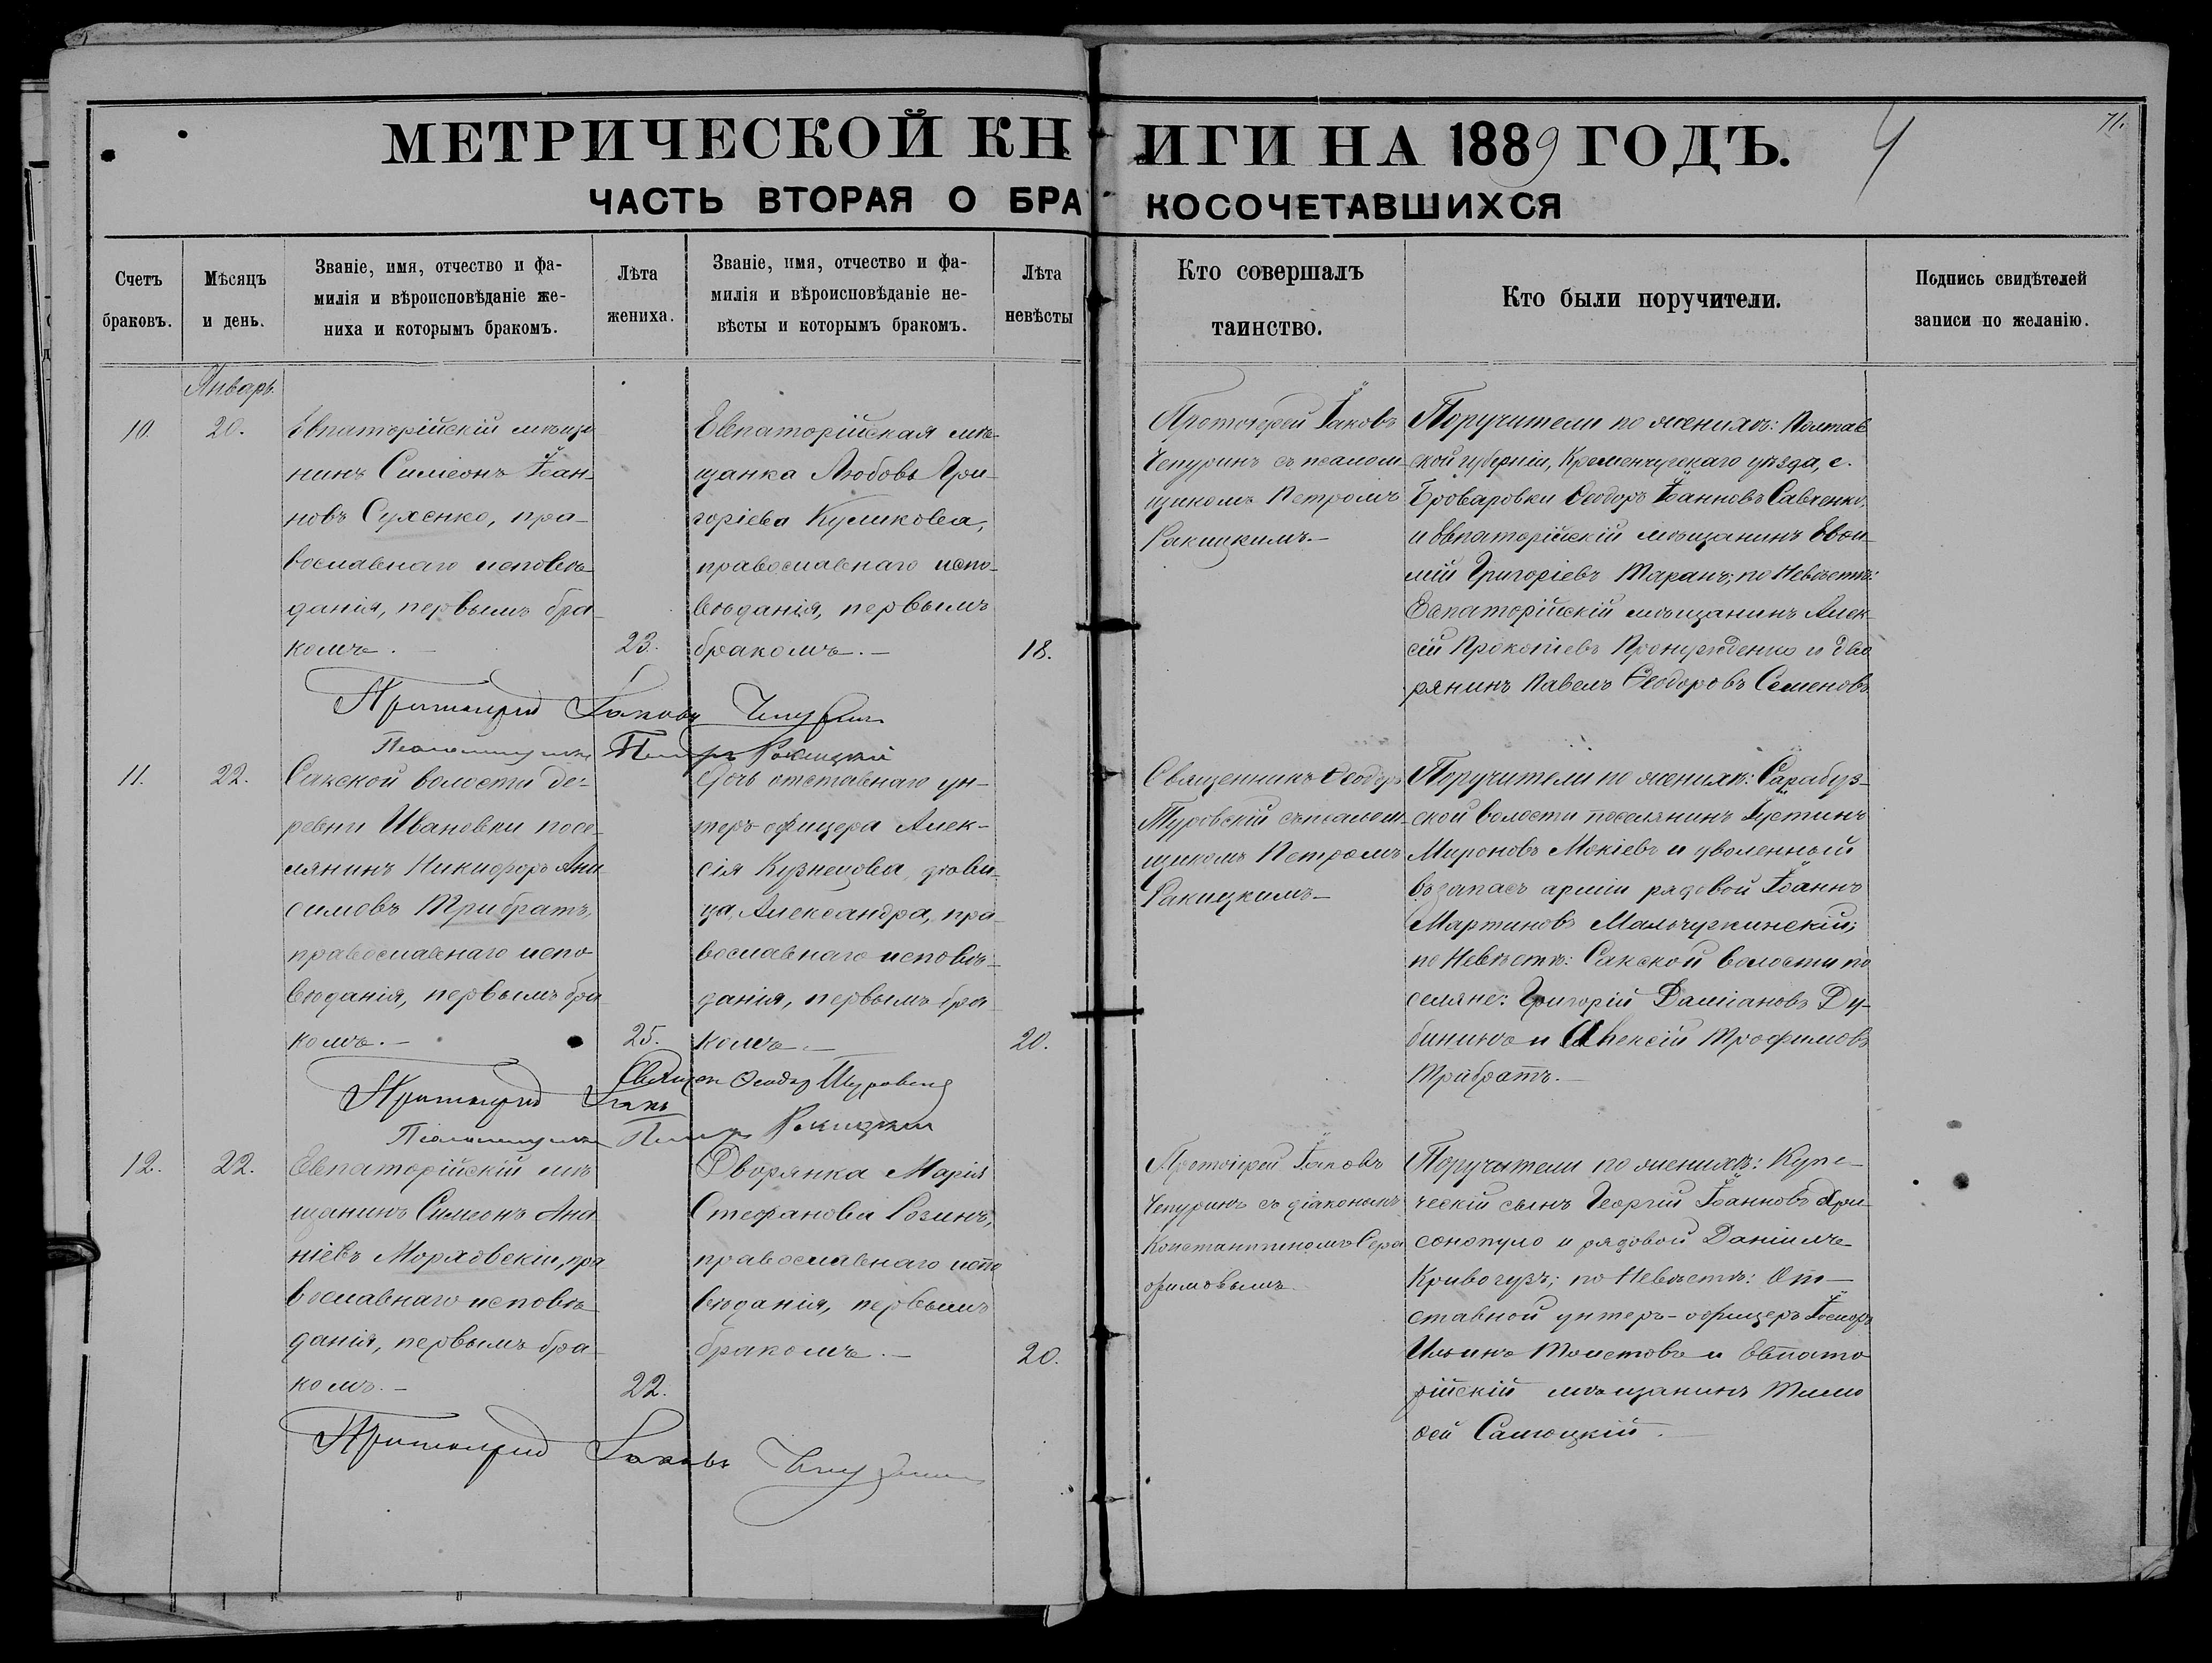 МЕТРИЧЕСКОЙ КНИГИ НА 1889 ГОДЪ.
4
71.
ЧАСТЬ ВТОРАЯ О БРАКОСОЧЕТАВШИХСЯ
Счетъ
браковъ.
Мѣсяцъ
и день.
Званіе, имя, отчество и фа-
милія и вѣроисповѣданіе же-
ниха и которымъ бракомъ.
Лѣта
жениха.
Званіе, имя, отчество и фа-
милія и вѣроисповѣданіе не-
вѣсты и которымъ бракомъ.
Лѣта
невѣсты
Кто совершалъ
таинство.
Кто были поручители.
Подпись свидѣтелей
записи по желанію.
Январь.
10.
20.
Евпаторійскій мѣща
нинъ Симеонъ Іоан-
новъ Сухенко, пра-
вославнаго исповѣ-
данія, первымъ бра-
комъ. –
23.
Евпаторійская мѣ-
щанка Любовь Гри-
горіева Куликова,
православнаго испо-
вѣданія, первымъ
бракомъ. –
18.
Протоіерей Іаковъ
Чепуринъ съ псалом-
щикомъ Петромъ
Ракицкимъ. –
Поручители по женихѣ: Полтав
ской губерніи, Кременчугскаго уѣзда, с.
Броваровки Ѳеодоръ Іоанновъ Савченко,
и Евпаторійскій мѣщанинъ Евѳи-
мій Григоріевъ Таранъ; по Невѣстѣ:
Евпаторійскій мѣщанинъ Алек-
сій Прокопіевъ и дво
рянинъ Павелъ Ѳеодоровъ Семеновъ
Протоіерей Іаковъ Чепуринъ
Псаломщикъ Петръ Ракицкій
11.
22.
Сакской волости де-
ревни Ивановки посе-
лянинъ Никифоръ Ани
симовъ Трибратъ,
православнаго испо
вѣданія, первымъ бра
комъ. –
25.
Дочь отставнаго ун-
теръ-офицера Алек-
сія Кузнецова, дѣви-
ца, Александра, пра-
вославнаго исповѣ-
данія, первымъ бра-
комъ. –
20.
Священникъ Ѳеодоръ
Туровскій съ псалом-
щикомъ Петромъ
Ракицкимъ –
Поручители по женихѣ: Сарабуз-
ской волости поселянинъ Іустинъ
Мироновъ Мокіевъ и уволенный
въ запасъ арміи рядовой Іоаннъ
Мартиновъ
по Невѣстѣ: Сакской волости по
селяне: Григорій Даміановъ Ду-
бининъ и Алексій Трофимовъ
Трибратъ. –
Священ Ѳеодор Туровскій
Протоіерей Іаковъ
Псаломщикъ Петръ Ракицкій
12.
22.
Евпаторійскій мѣ
щанинъ Симеонъ Ана
ніевъ Морховскій, пра
вославнаго исповѣ
данія, первымъ бра-
комъ. –
22.
Дворянка Марія
Стефанова Розинъ,
православнаго испо
вѣданія, первымъ
бракомъ. –
20.
Протоіерей Іаковъ
Чепуринъ съ діакономъ
Константиномъ Сера
фимовымъ.
Поручители по женихѣ: Купе-
ческій сынъ Георгій Іоанновъ Хри-
сопуло и рядовой Даніилъ
Кривогузъ; по Невѣстѣ: От-
ставной унтеръ-офицеръ Іосифъ
Ильинъ Толстовъ и Евпато
рійскій мѣщанинъ Тимо
ѳей
Протоіерей Іаковъ Чепуринъ